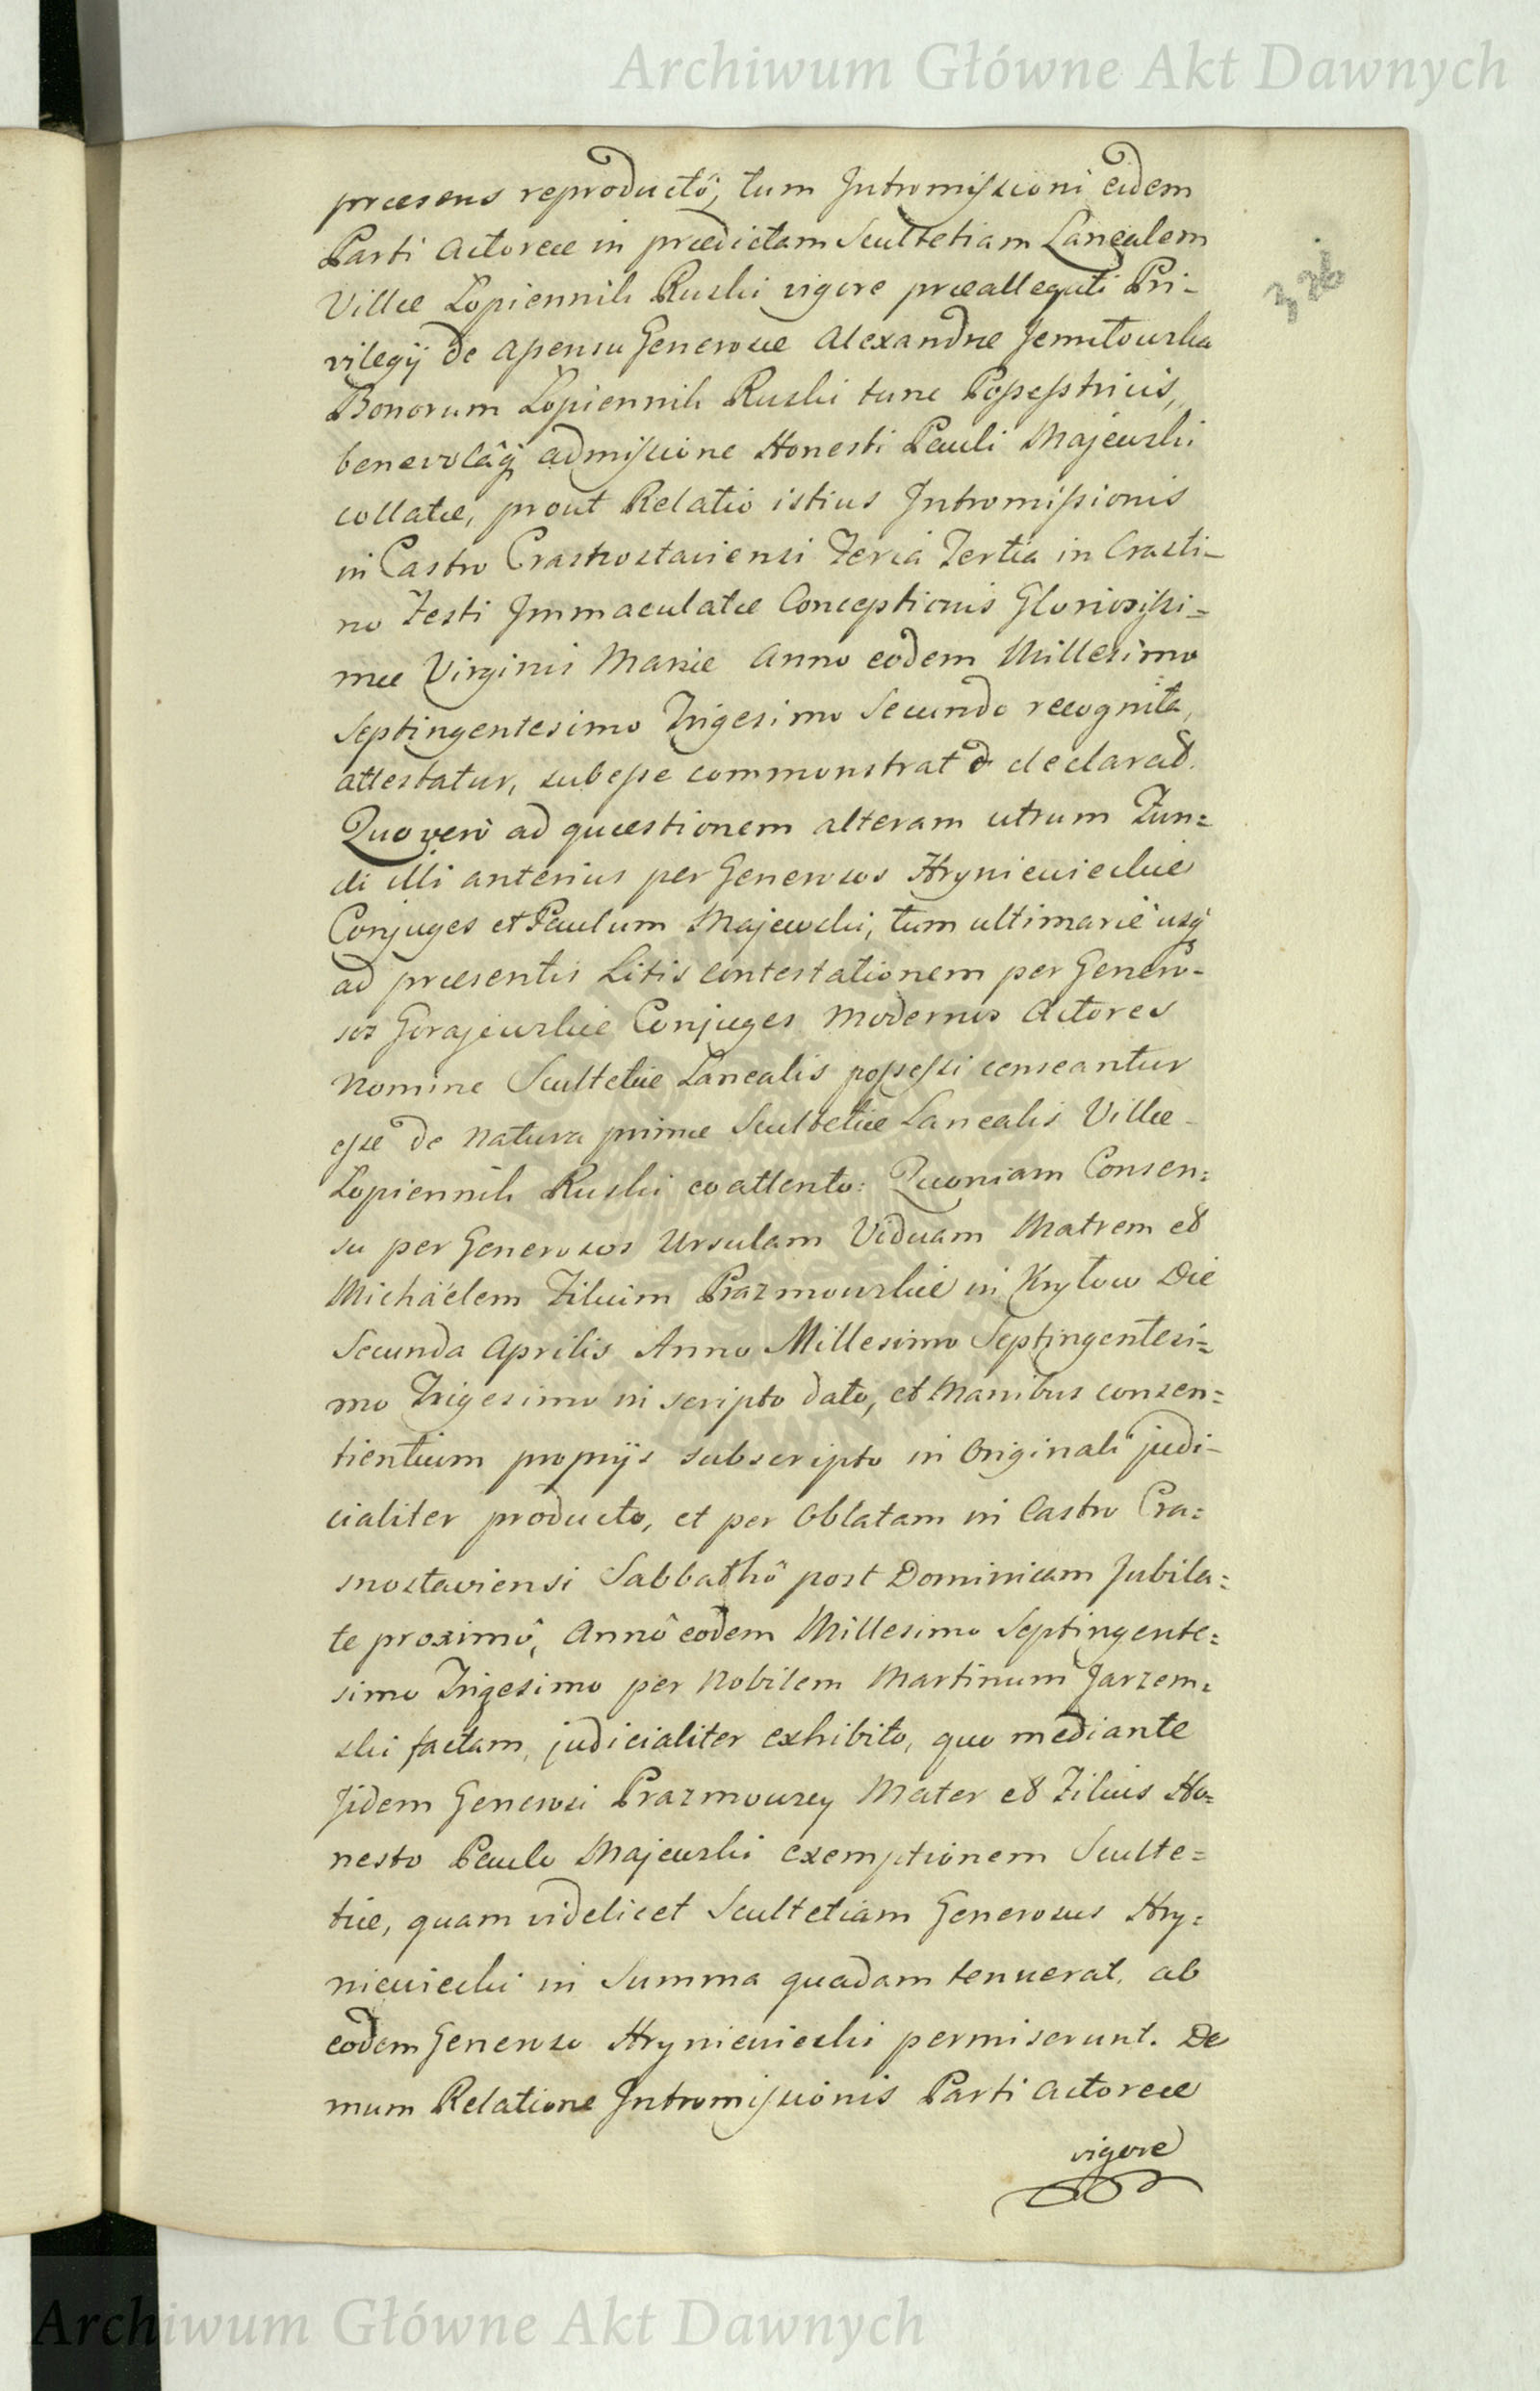 Archiwum Główne Akt Dawnych
præsens reproductô, tum Intromissioni eidem
Parti Actoreæ in prædictam Scultetiam Lanealem
Villæ Łopiennik Ruski vigore præallegati Pri-
vilegij de Generosæ Alexandræ
Bonorum Łopiennik Ruski tunc Possestricis,
benevolâq admissione Honesti Pauli Majewski
collatæ, prout Relatio istius Intromissionis
in Castro Crastrostaviensi Feria Tertia in Crasti-
no Festi Immaculatæ Conceptionis Gloriosissi=
mæ Virginis Mariæ Anno eodem Millesimo
Septingentesimo Trigesimo Secundo recognita,
attestatur, subesse commonstrat & declarat.
Quo verò ad quæstionem alteram utrum Fun=
di illi anterius per Generosos Hryniewieckie
Conjuges et Paulum Majewski, tum ultimariè usq
ad præsentis Litis contestationem per Genero-
sos Gorajewskie Conjuges Modernos Actores
Nomine Scultetiæ Lanealis possessi censeantur
esse de Natura primæ Scultetiæ Lanealis Villæ
Łopiennik Ruski eo attento: Quoniam Consen=
su per Generosos Ursulam Viduam Matrem et
Michäelem Filium Prazmowskie in Kryłow Die
Secunda Aprilis Anno Millesimo Septingentesi=
mo Trigesimo in scripto dato, et Manibus consen=
tientium proprijs subscripto in Originali judi-
cialiter producto, et per Oblatam in Castro Cra=
snostaviensi Sabbathô post Dominicam Jubila=
te proximô, Annô eodem Millesimo Septingente=
simo Trigesimo per Nobilem Martinum Jarzem=
ski factam, judicialiter exhibito, quo mediante
Iidem Generosi Prazmowscy Mater et Filius Ho=
nesto Paulo Majewski exemptionem Sculte=
tiæ, quam videlicet Scultetiam Generosus Hry=
niewiecki in Summa quadam tenuerat, ab
eodem Generoso Hryniewiecki permiserunt. De
mum Relatione Intromissionis Parti Actoreæ
vigore
Archiwum Główne Akt Dawnych